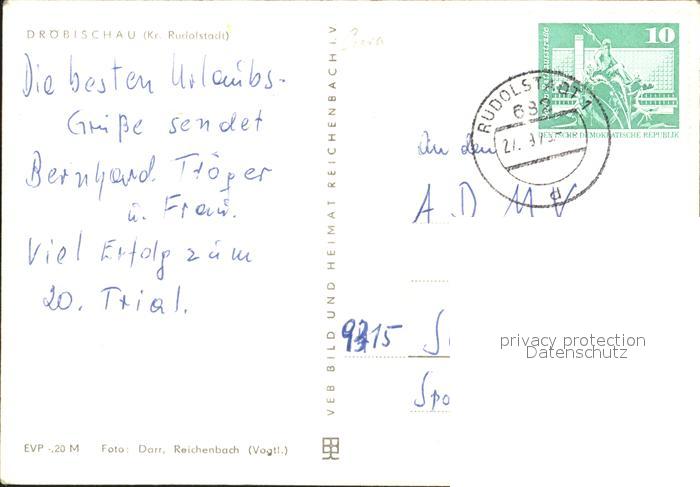 DRÖBISCHAU (Kr. Rudolstadt)
Die besten Urlaubs-
Grüße sendet
Bernhard Träger
u. Frau.
Viel Erfolg zum
20. Trial.
EVP -,20 M Foto: Darr, Reichenbach (Vogtl.)
VEB BILD UND HEIMAT REICHENBACH I.V
10
DEUTSCHE DEMOKRATISCHE REPUBLIK
RUDOLSTADT 1
682
An den
A D M V
9315
Spo
privacy protection
Datenschutz